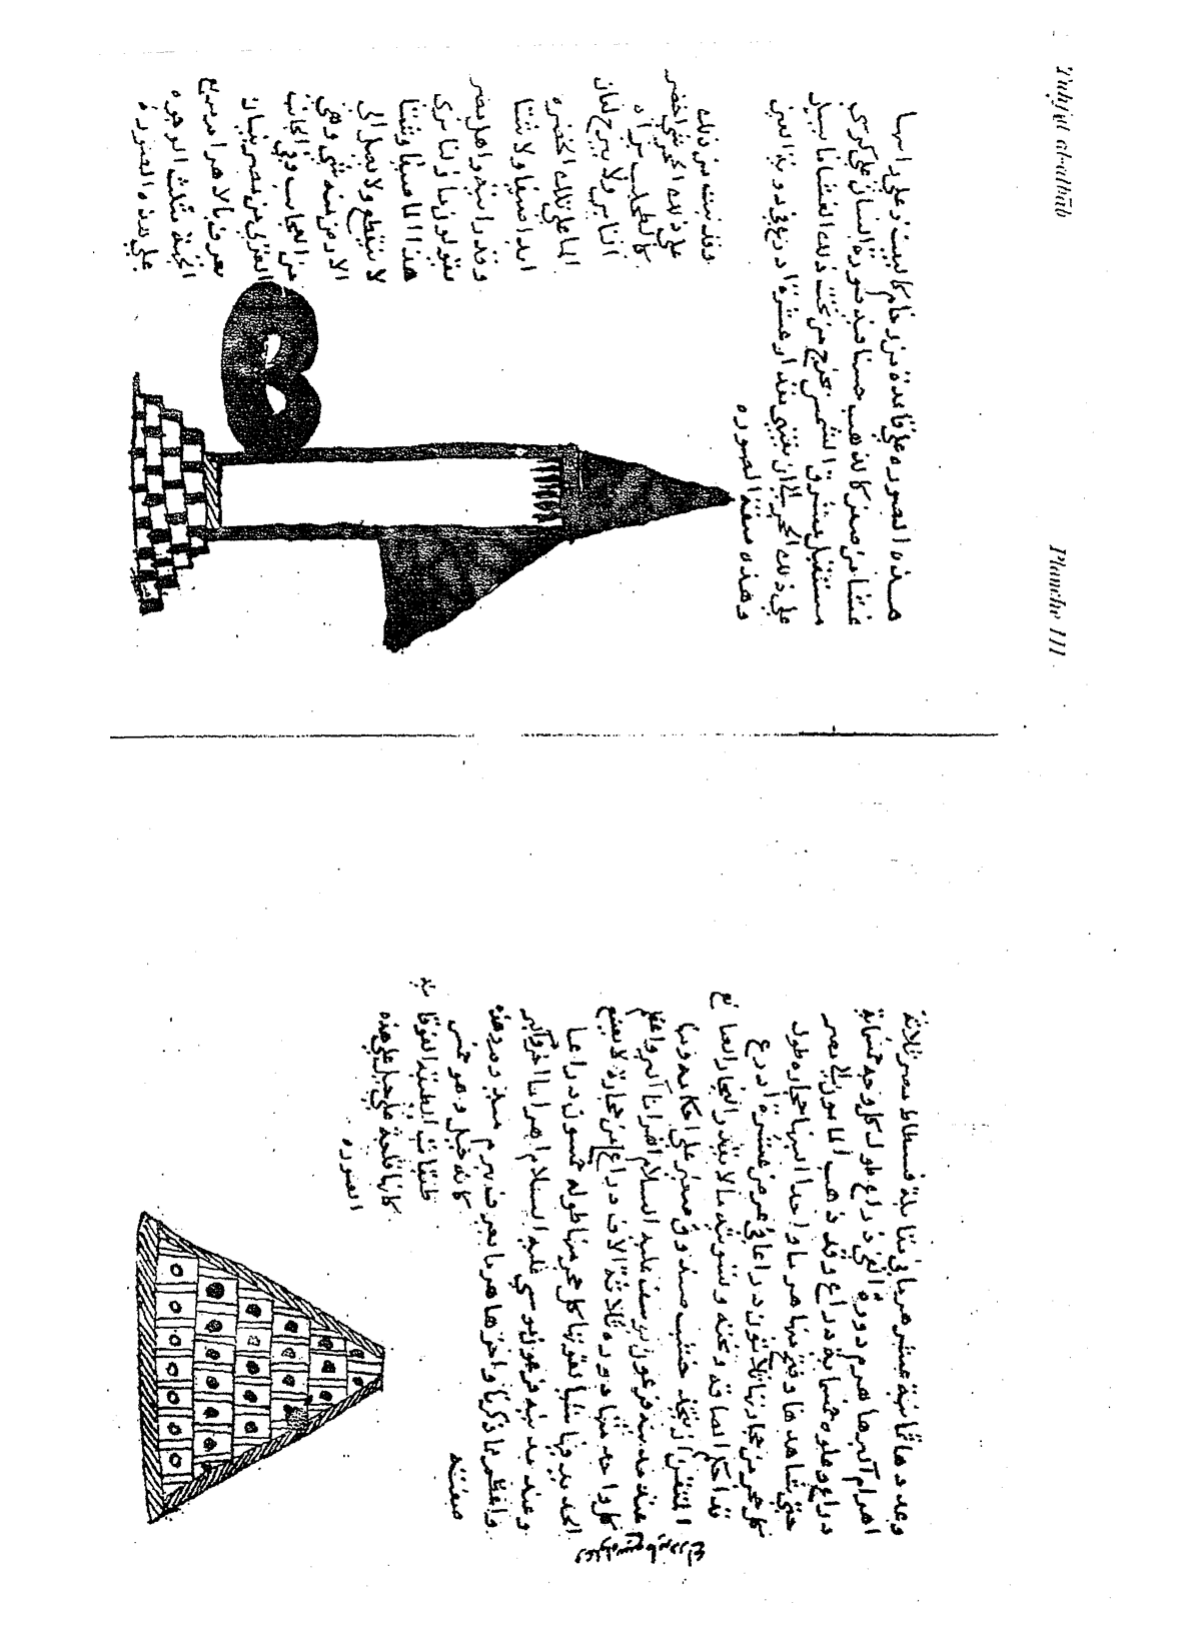 Tuḥfat al-albāb
Planche III
وعددها ثمانية عشر هرما في مقابلة فسطاط مصر ثلاثة
اهرام اكبرها هرم دوره الفي ذراع طول كل وجه خمسماية
ذراع وعلوه خمسماية ذراع وقد ذهب المامون الى مصر
حتى شاهدها وفتح منها هرما واحدا حجاره طول
كل حجر من حجارتها ثلاثون ذراعا في عرض عشرة اذرع
قد احكم الصاقه ونحته وتسويته ما لا يقدر النجار الصانع
المتقن ان يتخذ خشب صندوق صغير على احكامه ومنها
عند مدينة فرعون يوسف عليه السلام اهرامات اكبر واعظم
كل واحد منها دوره ثلاثة الاف ذراع من حجارة لا يصنع
الحديد فيها شيا لقوتها كل حجر منها طوله خمسون ذراعا
وعند مدينه فرعون موسي عليه السلام اهرامات اخر اكبر
واعظم مما ذكرنا واخرها هرما يعرف بهرم وهذه
صفته كانه جبل وهو خمس
طبقات الطبقة الفوقانية
كانها قلعة على جبل على هذه
الصوره
هذه الصوره علي قاعدة من رخام كالبيت وعلى راسها
غشا من صفر كالذهب حسنا فيه صورة انسان على كرسي
مستقبل مشرق الشمس يخرج من تحت ذلك الغشا ما يسيل
على ذلك الحجر الى ان ينتهي مقدار عشرة اذرع في دوره العين
وهذه صفة الصوره
وقد نبت من ذلك
على ذلك الحجر شي اخضر
كالطحلب يراه
الناس ولا يبرح لمعان
الما على تلك الخضره
ابدا صيفا ولا شتا
وقد رايته واهل مصر
يقولون ما زلنا نرى
هذا الما صيفا وشتا
لا ينقطع ولا يصل الى
الارض منه شي وهي
من العجايب وفي الجانب
الغربي من مصر بنيان
يعرف بالاهرام مربع
الجهة مثلث الوجوه
على هذه الصوره